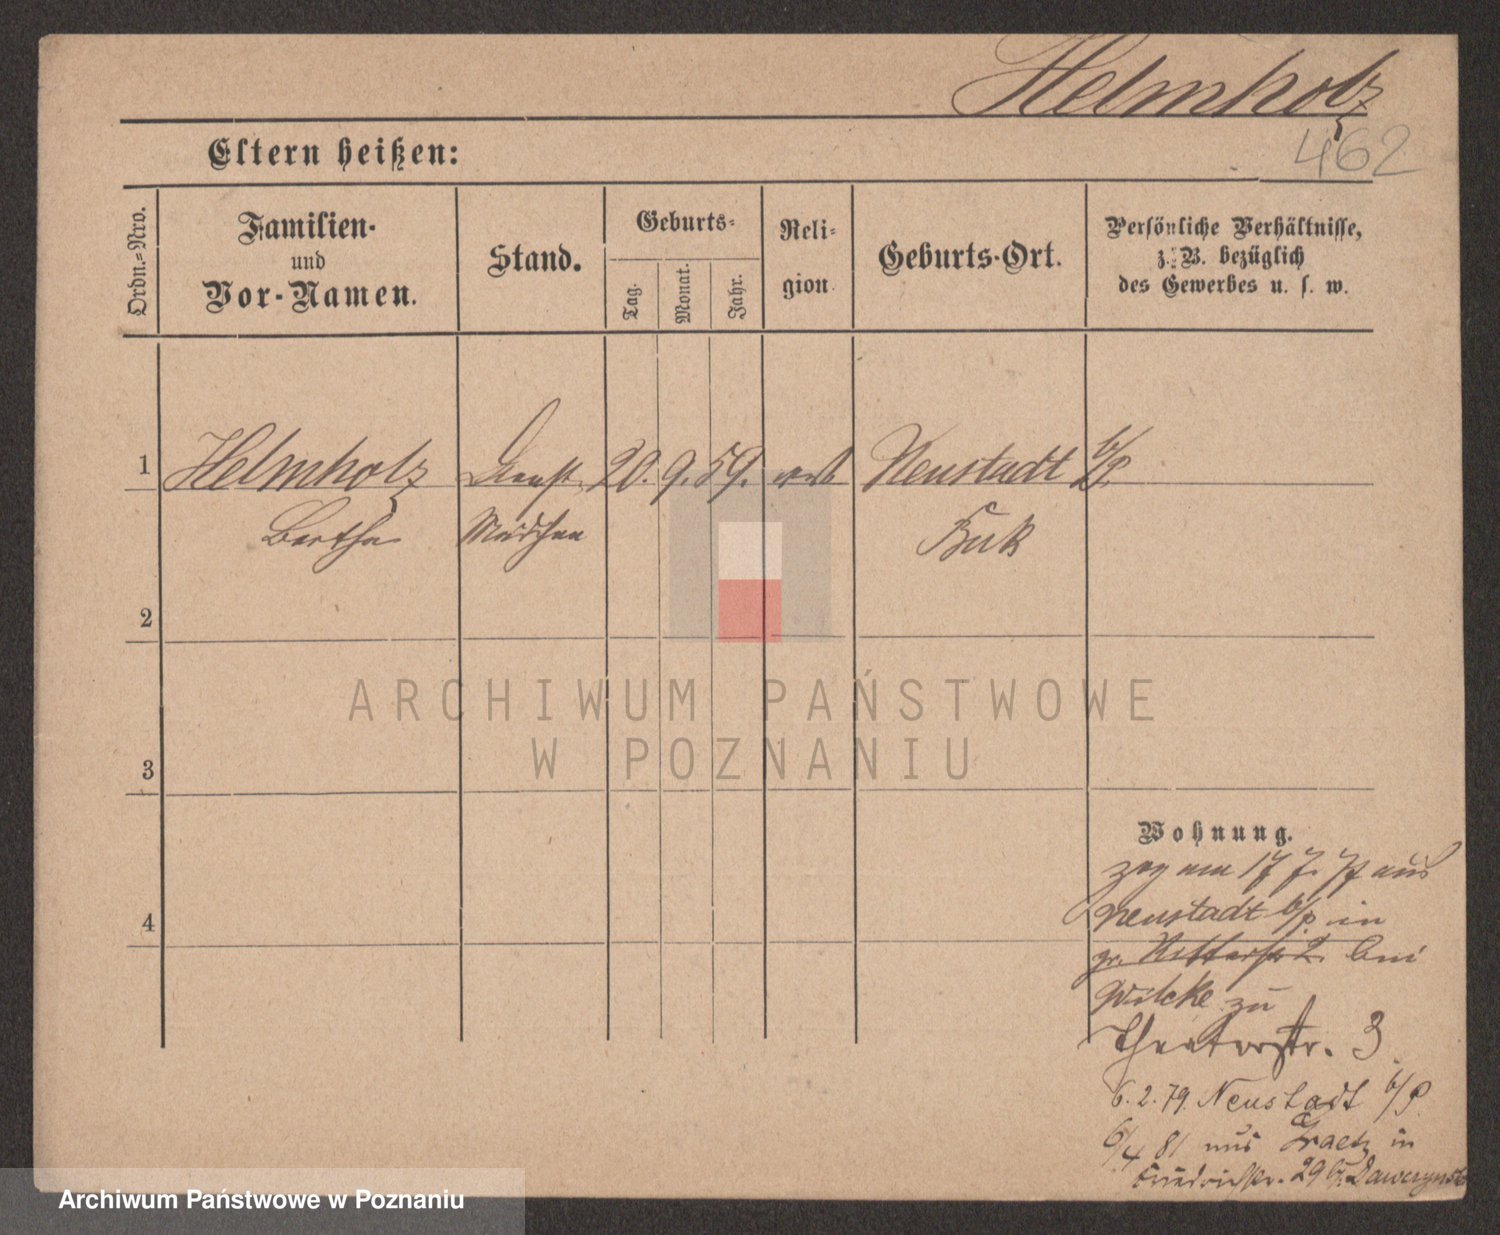 Helmholz
462
Eltern heißen:
Ordn.=Nro.
Familien-
und
Vor-Namen.
Stand.
Geburts-
Tag.
Monat.
Jahr.
Reli-
gion.
Geburts-Ort.
Persönliche Verhältnisse,
z. B. bezüglich
des Gewerbes u. s. w.
1 Helmholz Dienst 20. 9. 59. Neustadt b/P.
Bertha Mädchen Buk
2
ARCHIWUM PAŃSTWOWE
W POZNANIU
3
Wohnung.
zog am 17 7. 77 aus
4 Neustadt b/P. in
gr. Ritterstr 2. bei
Wilcke zu
Theaterstr. 3
6. 2. 79. Neustadt b/P.
6/4 81 aus Graetz in
Friedrichstr. 29 b.
Archiwum Państwowe w Poznaniu